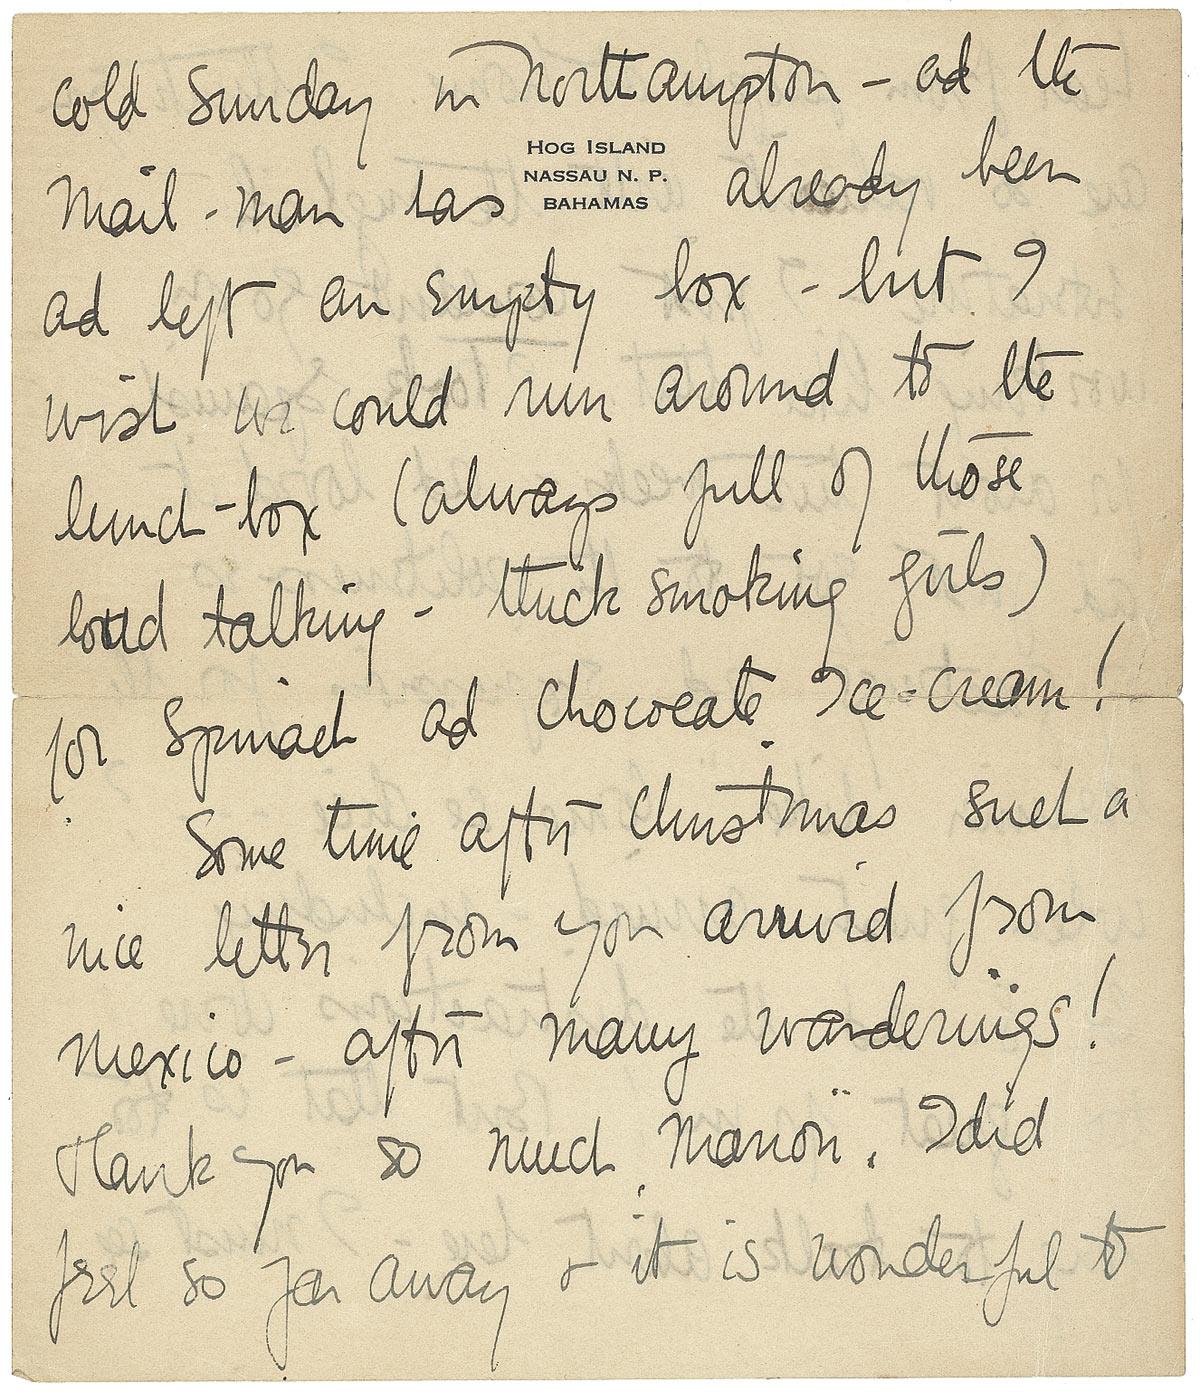 cold Sunday in Northampton - ad the
HOG ISLAND
NASSAU N. P.
BAHAMAS
Mail-man has already been
ad left an empty box - but I
wish we could run around to the
lunch-box (always full of those
loud talking - thick smoking girls)
for Spinach ad Chocolate Ice-cream!
Some time after Christmas such a
nice letter from you arrived from
Mexico - after many wanderings!
Thank you so much, . I did
feel so far away & it is wonderful to